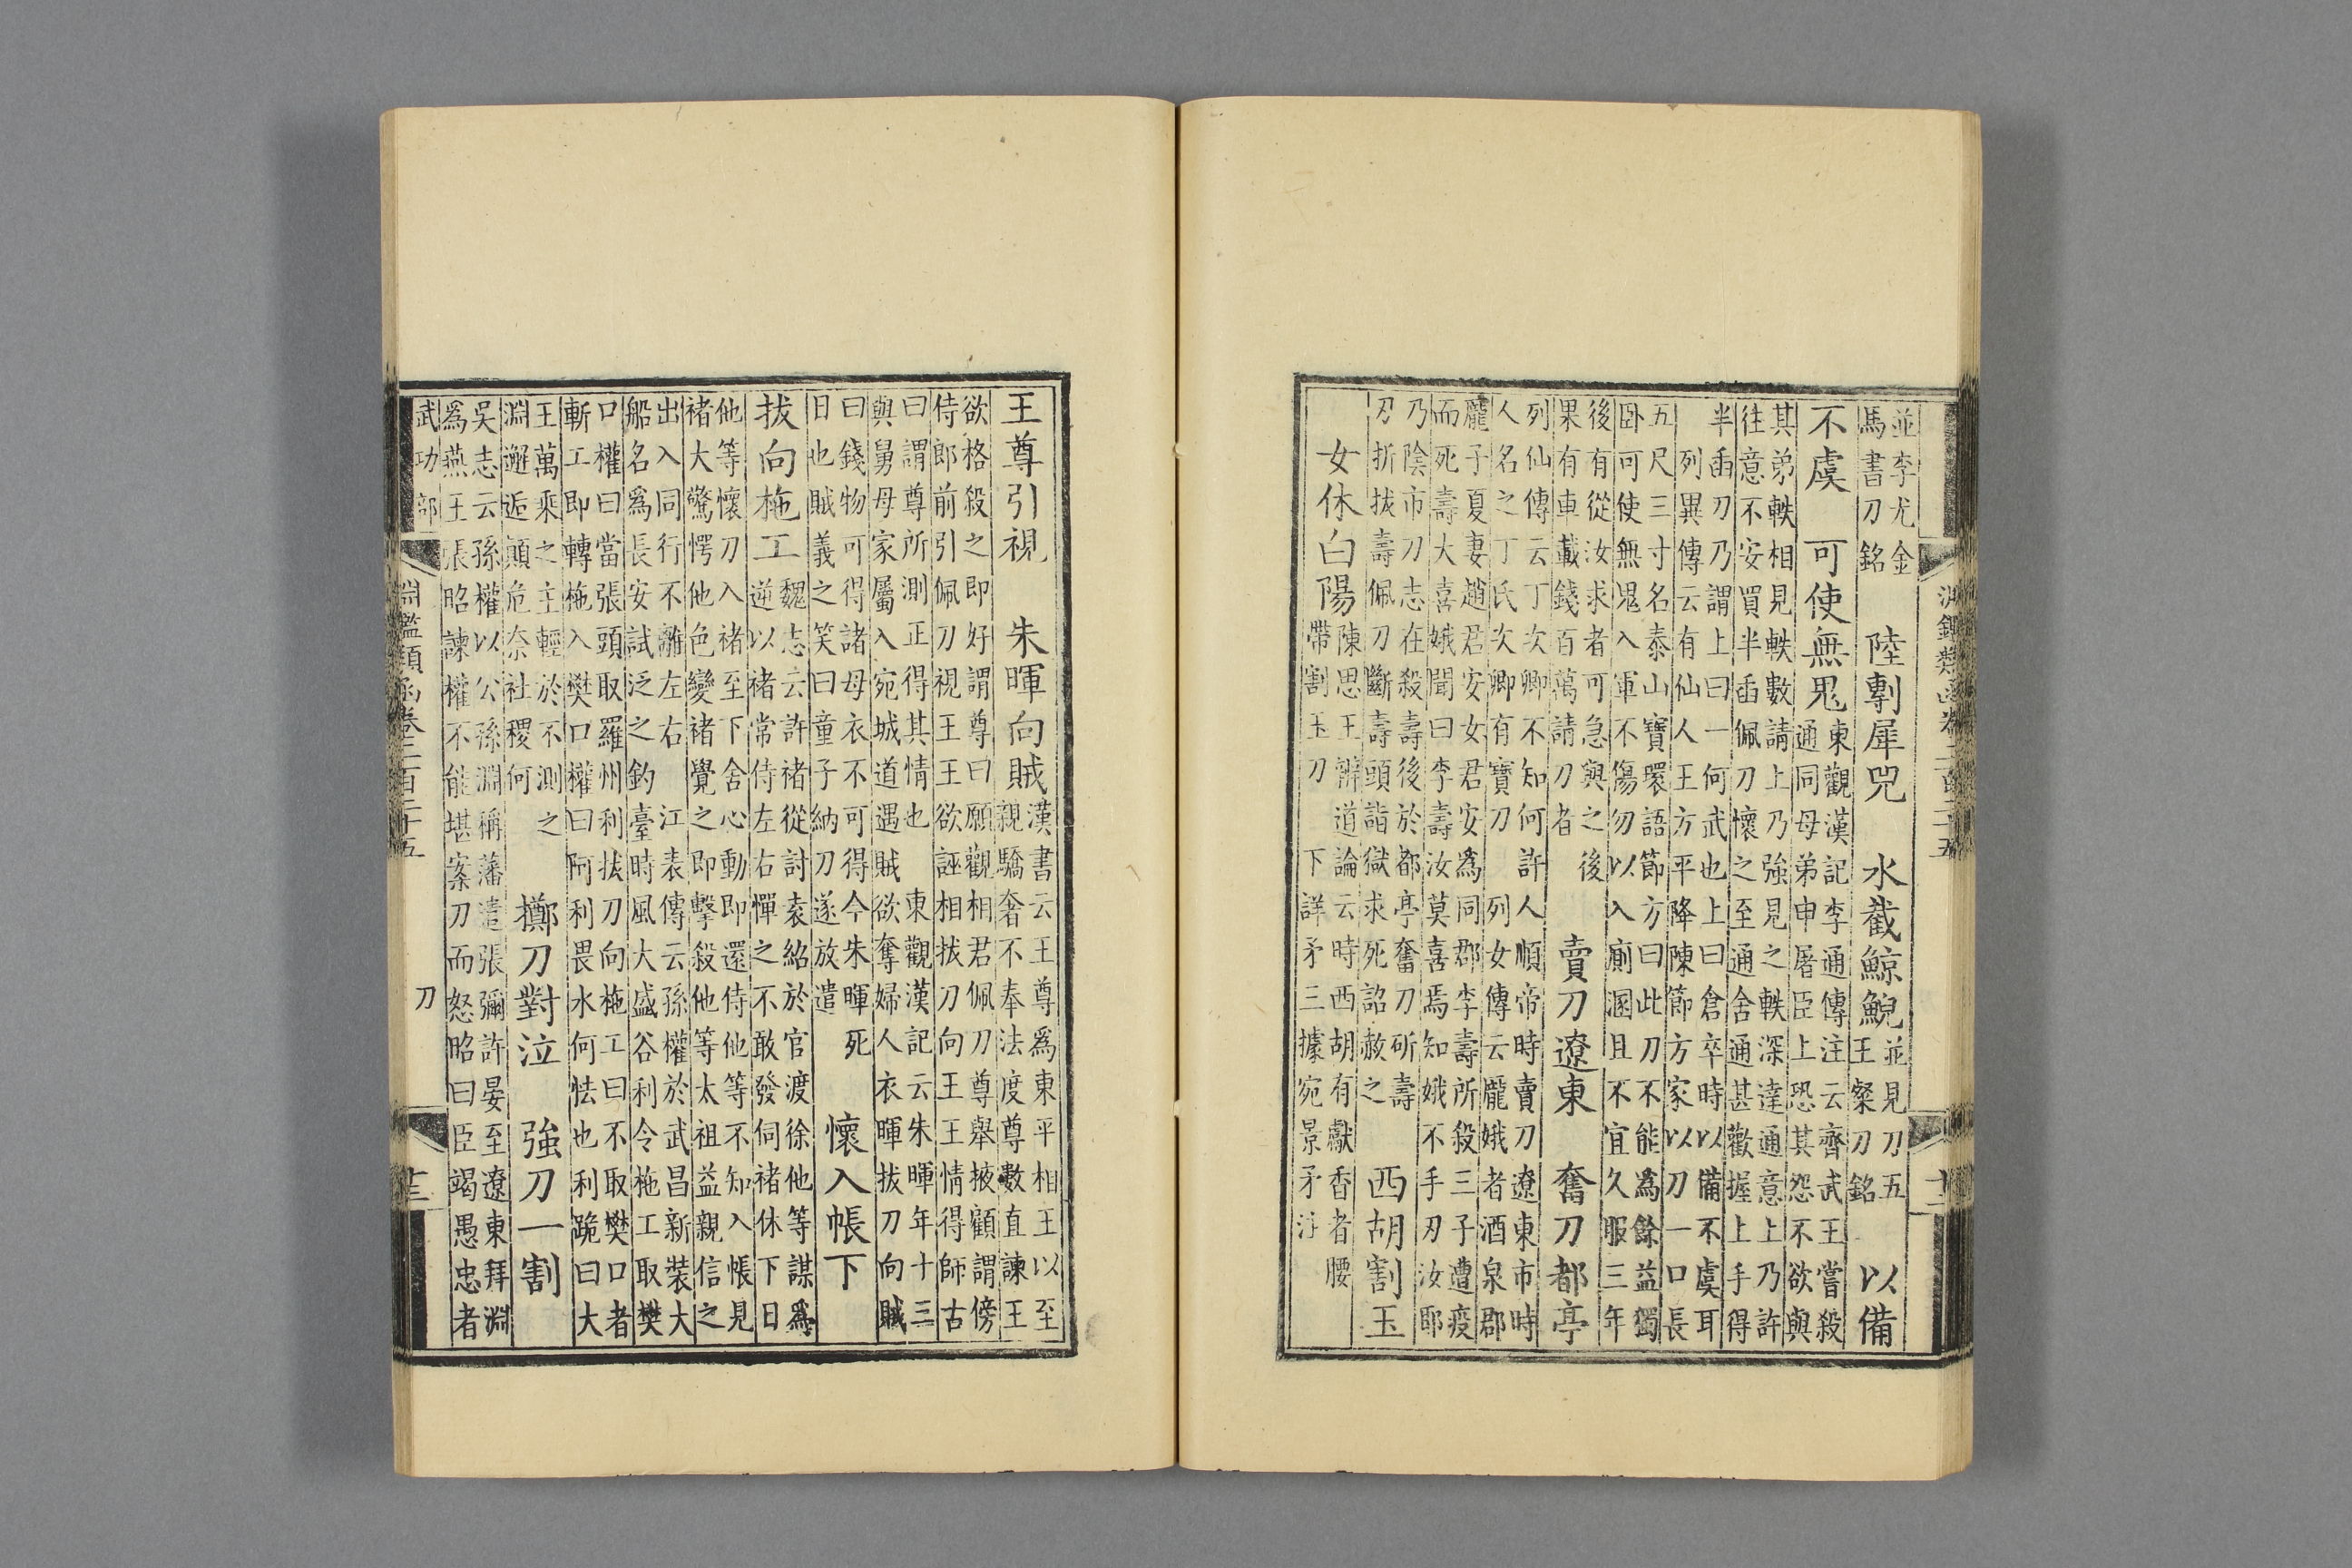 淵鑑類函卷二百二十五
十二
並李尤金
馬書刀銘
陸剸犀兕　水截鯨鯢
並見刀五
王粲刀銘
以備
不虞　可使無鬼
東觀漢記李通傳注云齊武王嘗殺
通同母弟申屠臣上恐其怨不欲與
其弟軼相見軼數請上乃強見之軼深達通意上乃許
往意不安買半臿佩刀懷之至通舍通甚歡握上手得
半臿刀乃謂上曰一何武也上曰倉卒時以備不虞耳
列異傳云有仙人王方平降陳節方家以刀一口長
五尺三寸名泰山寶環語節方曰此刀不能爲餘益獨
卧可使無鬼入軍不傷勿以入廁溷且不宜久服三年
後有從汝求者可急與之後
果有車載錢百萬請刀者
賣刀遼東　奮刀都亭
列仙傳云丁次卿不知何許人順帝時賣刀遼東市時
人名之丁氏次卿有寶刀　列女傳云龐娥者酒泉郡
龐子夏妻趙君安女君安爲同郡李壽所殺三子遭疫
而死壽大喜娥聞曰李壽汝莫喜焉知娥不手刃汝耶
乃陰市刀志在殺壽後於都亭奮刀斫壽
刃折拔壽佩刀斷壽頭詣獄求死詔赦之
西胡割玉
女休白陽
陳思王辨道論云時西胡有獻香者腰
帶割玉刀　下詳矛三據宛景矛注
王尊引視　朱暉向賊
漢書云王尊爲東平相王以至
親驕奢不奉法度尊數直諫王
欲格殺之即好謂尊曰願觀相君佩刀尊舉掖顧謂傍
侍郎前引佩刀視王王欲誣相拔刀向王王情得師古
曰謂尊所測正得其情也　東觀漢記云朱暉年十三
與舅母家屬入宛城道遇賊欲奪婦人衣暉拔刀向賊
曰錢物可得諸母衣不可得今朱暉死
日也賊義之笑曰童子納刀遂放遣
懷入帳下
拔向柂工
魏志云許褚從討袁紹於官渡徐他等謀爲
逆以褚常侍左右憚之不敢發伺褚休下日
他等懷刀入褚至下舍心動即還侍他等不知入帳見
褚大驚愕他色變褚覺之即擊殺他等太祖益親信之
出入同行不離左右　江表傳云孫權於武昌新裝大
船名爲長安試泛之釣臺時風大盛谷利令柂工取樊
口權曰當張頭取羅州利拔刀向柂工曰不取樊口者
斬工即轉柂入樊口權曰阿利畏水何怯也利跪曰大
王萬乘之主輕於不測之
淵邂逅顛危奈社稷何
擲刀對泣　強刀一割
吳志云孫權以公孫淵稱藩遣張彌許晏至遼東拜淵
爲燕王張昭諫權不能堪案刀而怒昭曰臣竭愚忠者
武功部
淵鑑類函卷二百二十五
刀
十三